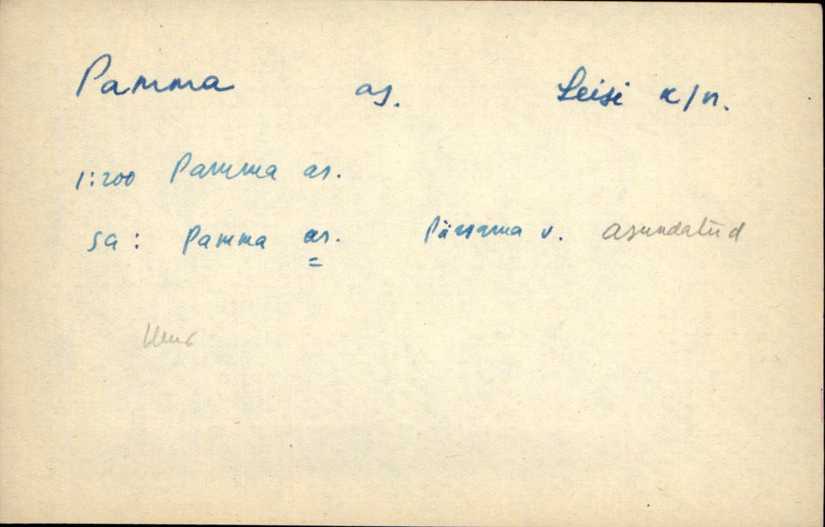 Pamma as. Leisi k/n.
1:200 Pamma as.
sa: Pamma as. Pärsama v. asundatüd
Uus